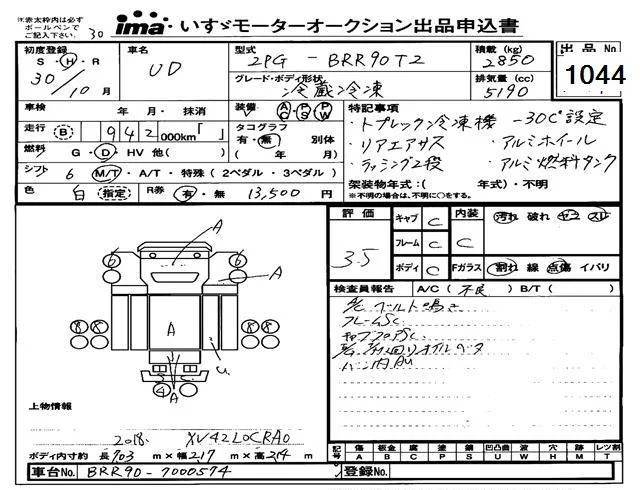 ※赤太枠内は必ず
ボールペンで
ご記入下さい。
30
ima いすゞモーターオークション出品申込書
初度登録 S・H・R 30/10月
車名 UD
型式 2PG - BRR90T2
積載(kg) 2850
出品No. 1044
グレード・ボディ形状 冷蔵冷凍
排気量(cc) 5190
車検 年・月・抹消
装備 AC PS PW
特記事項
・トプレック冷凍機 -30C°設定
走行 (B) 942 000km「 」
タコグラフ 有・無 別体 ( 年 月)
・リアエアサス ・アルミホイール
燃料 G・D・HV 他( )
・ラッシング2段 ・アルミ燃料タンク
シフト 6 M/T・A/T・特殊(2ペダル・3ペダル)
架装物年式:( 年式)・不明
※不明の場合は、不明に○をする。
色 白 指定
R券 有・無 13,500円
評価 3.5
キャブ C
内装 C
汚れ 破れ ヤニ スレ
フレーム C
ボディ C
Fガラス 割れ 線 点傷 イバリ
検査員報告 A/C(不良) B/T( )
ベルト鳴き
フレームSC
キャブフロアSC
オイル
バン内AU
A
6 6
A
8 8 A 8 8
u
S C
4 A
上物情報
2018. XV42LOCRA0
ボディ内寸約 長703 m×幅2.17 m×高2.14 m
記号 傷A 板金B 腐C 塗P 錆S 凹凸曲U 波W 穴H 跡M レツ割T
車台No. BRR90-7000574
登録No.